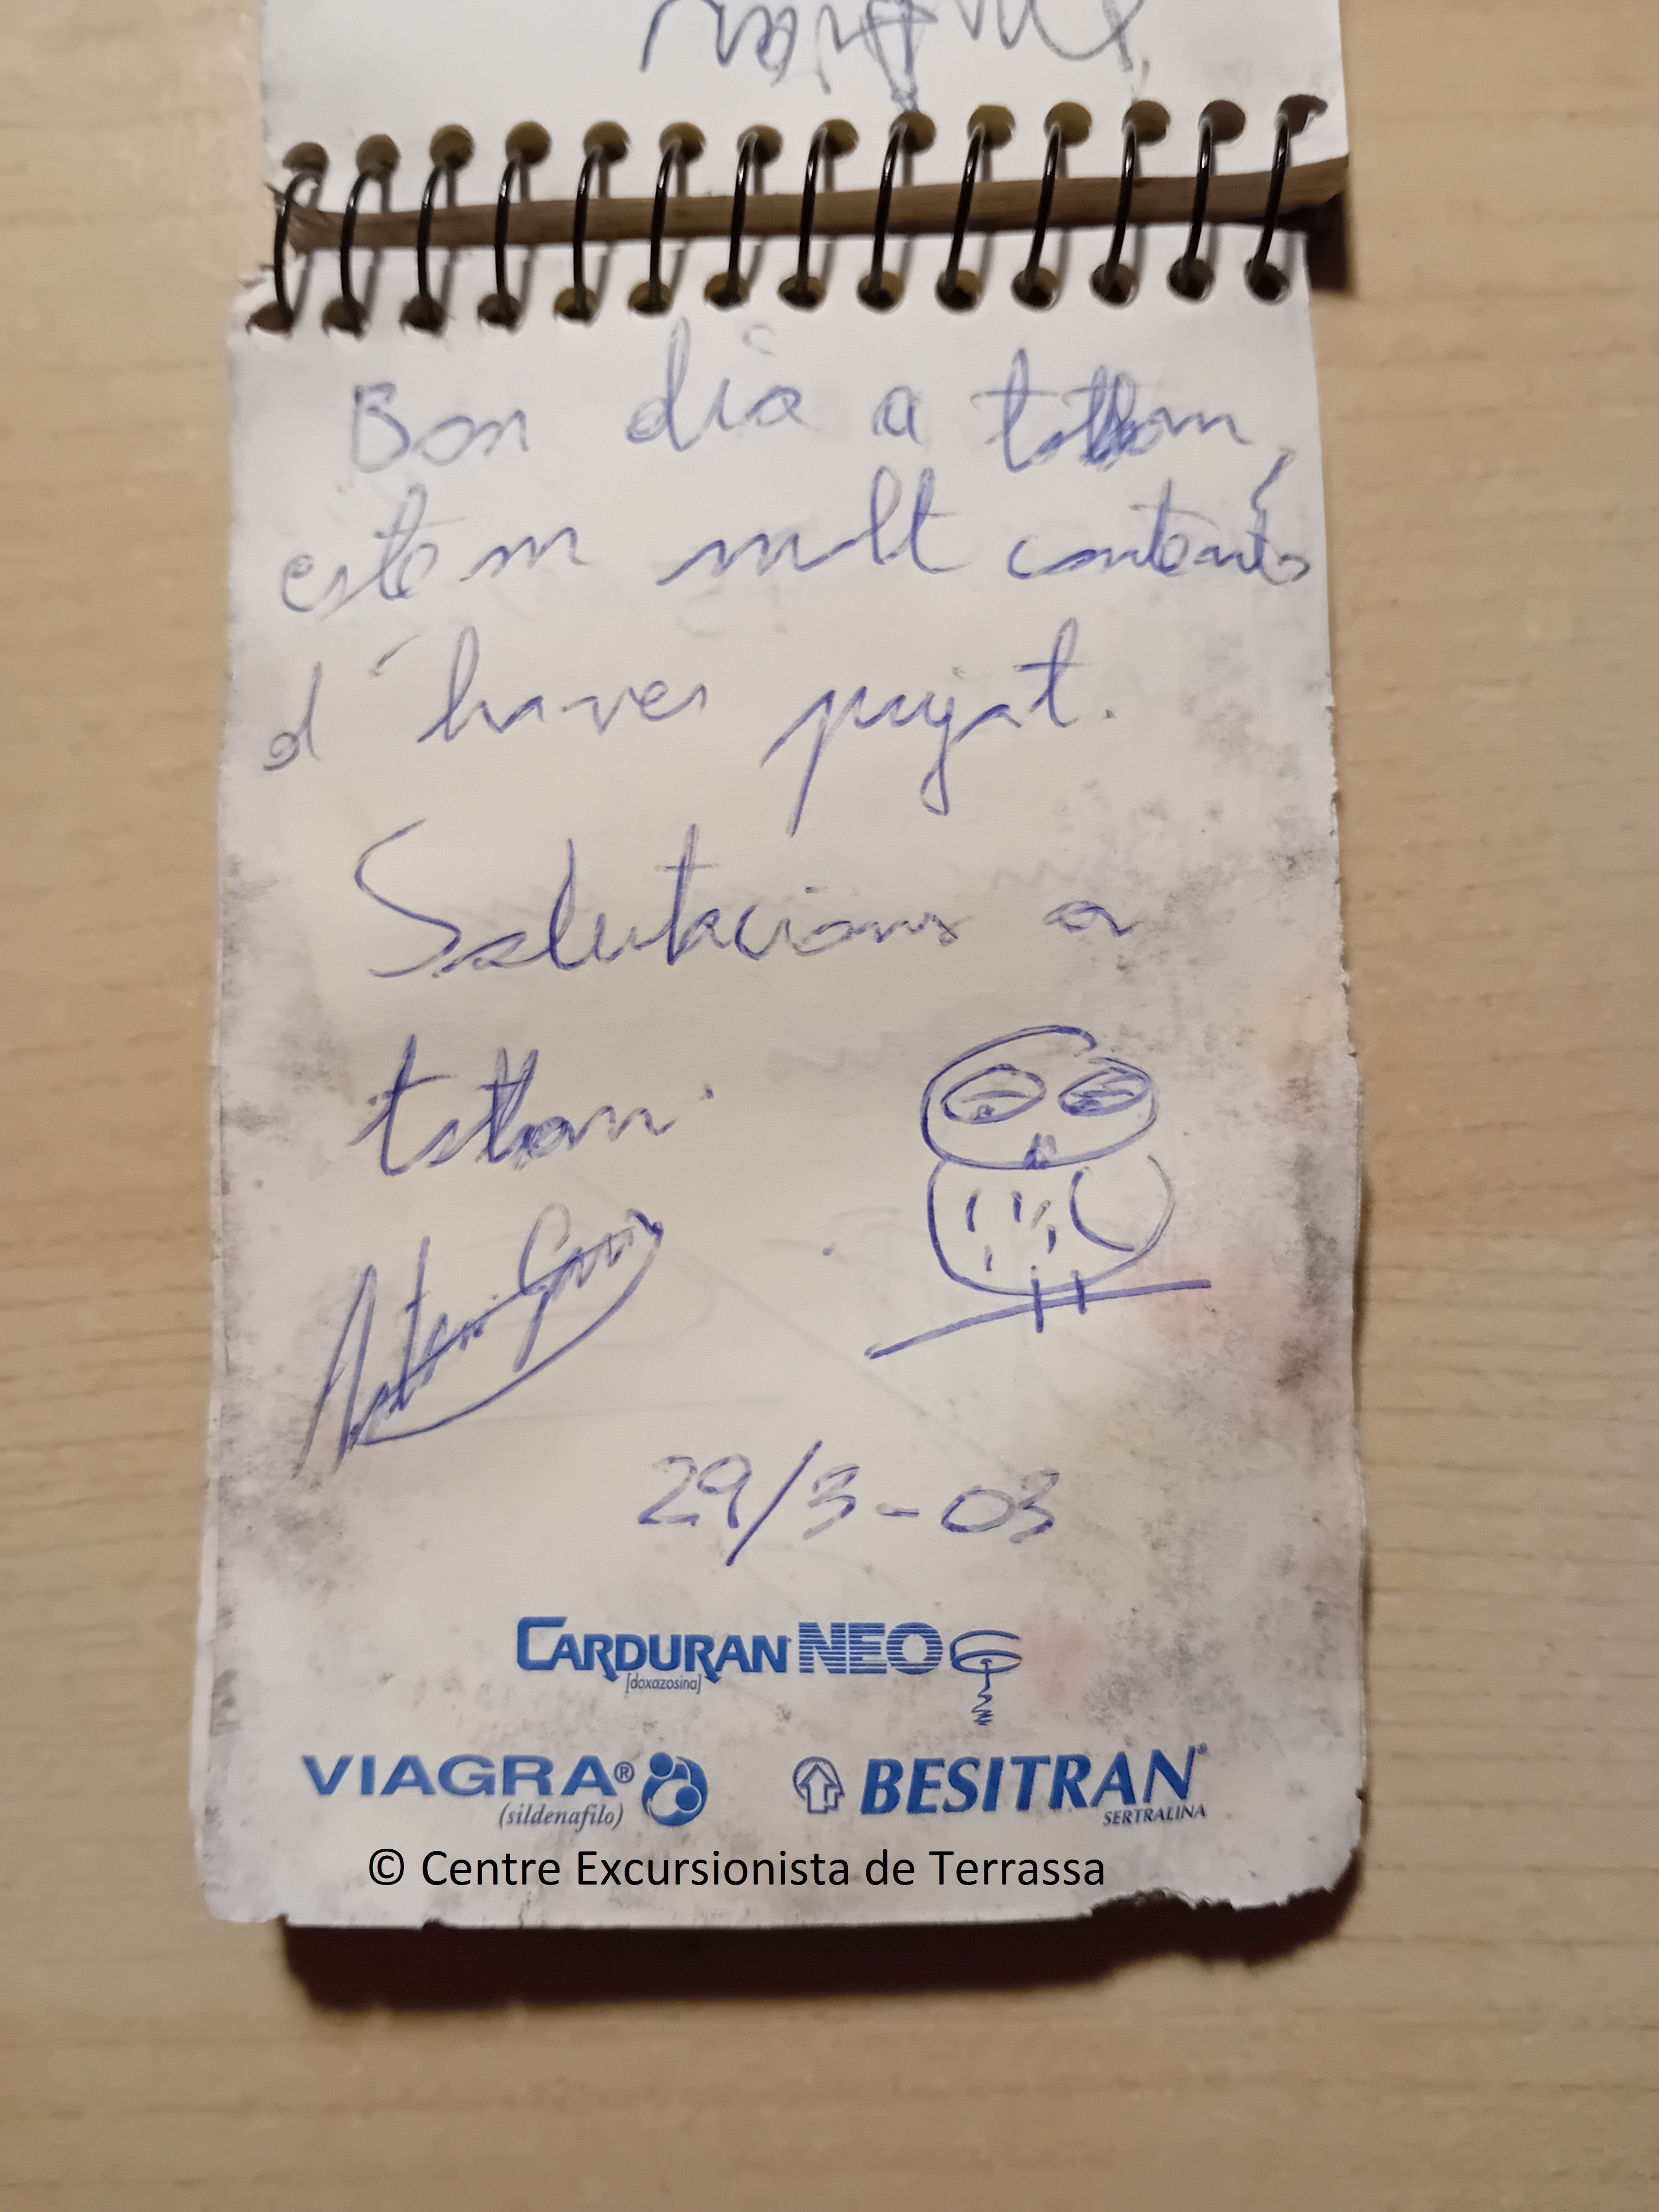 Bon dia a tothom,
estem molt contents
d'haver pujat.
Salutacions a
tothom.
29/3-03
CARDURAN NEO
[doxazosina]
VIAGRA® BESITRAN®
(sildenafilo) SERTRALINA
© Centre Excursionista de Terrassa